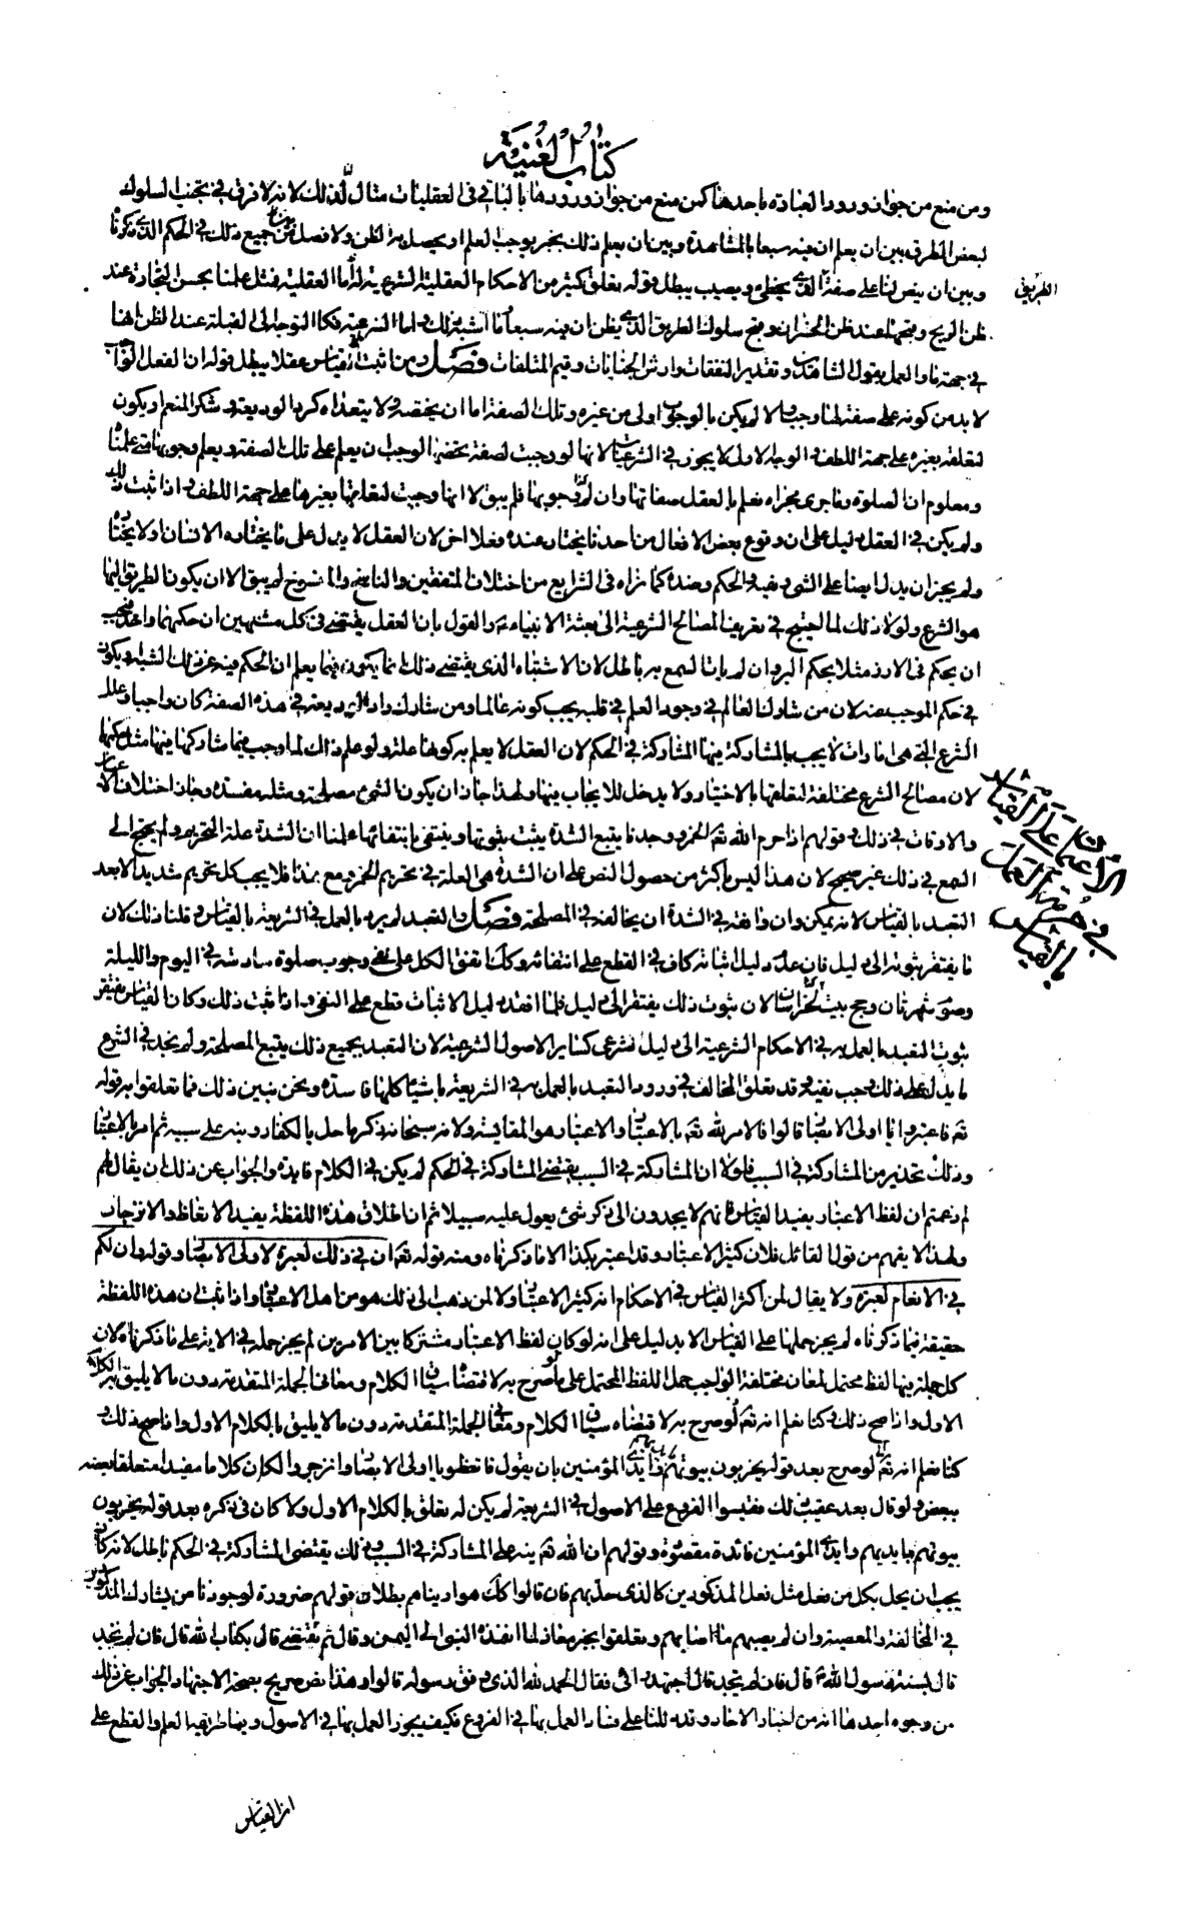 كتاب الغنية
ومن منع من جواز ورود العبادة باحدها كمن منع من جواز ورودها بالباقي في العقليات مثال لذلك لانه لا فرق في تجنب السلوك
لبعض الطرق بين ان يعلم ان فيه سبعا بالمشاهدة وبين ان يعلم ذلك بخبر يوجب العلم او يحصل به الظن ولا فصل بين جميع ذلك في الحكم الذي ذكرنا
وبين ان ينص لنا على صفة الذي يخطئ ويصيب يبطل قوله تعلق كثير من الاحكام العقلية الشرعية اما العقلية فمثل علمنا بحسن التجارة عند
ظن الربح وقبحها عند ظن الخسران وقبح سلوك الطريق الذي يظن ان فيه سبعا وما اشبه ذلك واما الشرعية فكالتوجه الى القبلة عند الظن انها
في جهة ما والعمل بقول الشاهدين وتقدير النفقات وارش الجنايات وقيم المتلفات فصل ومن اثبت القياس عقلا يبطل قوله ان الفعل الواجب
لا بد من كونه على صفة لها وجب والا لم يكن بالوجوب اولى من غيره وتلك الصفة اما ان يختصه ولا يتعداه كرد الوديعة وشكر المنعم او يكون
لتعلقه بغيره على جهة اللطف والوجه الاول لا يجوز في الشرعيات لانها لو وجبت لصفة تخصها لوجب ان يعلم على تلك الصفة ويعلم وجوبها متى علمنا
ومعلوم ان الصلوة وما جرى مجراه نعلم بالعقل صفاتها وان لم وجوبها فلم يبق الا انها وجبت لتعلقها بغيرها على جهة اللطف واذا ثبت ذلك
ولم يكن في العقل دليل على ان وقوع بعض الافعال من احدنا يختار عنده فعلا اخر لان العقل لا يدل على ما يختاره الانسان ولا يختار
ولم يجز ان يدل ايضا على الشئ ونفيه والحكم وضده كما نراه في الشرايع من اختلاف المتفقين والناسخ والمنسوخ لم يبق الا ان يكون الطريق اليها
هو الشرع ولولا ذلك لما احتيج في تعريف المصالح الشرعية الى بعثة الانبياء ع والقول بان العقل يقتضي في كل مشتبهين ان حكمهما واحد فيجب
ان يحكم في الارز مثلا بحكم البر وان لم يات السمع به باطل لان الاشتباه الذي يقتضي ذلك انما يكون فيما يعلم ان الحكم فيه عن ذلك الشبه او يكون
في حكم الموجب عنه لان من شارك العالم في وجود العلم في قلبه يجب كونه عالما ومن شارك راد الوديعة في هذه الصفة كان واجبا وعلل
الشرع التي هي امارات لا يجب بالمشاركة فيها المشاركة في الحكم لان العقل لا يعلم به كونها علة ولو علم ذلك لما وجب فيما شاركها فيها مثل حكمها
لان مصالح الشرع مختلفة لتعلقها بالاختيار ولا يدخل للايجاب فيها ولهذا جاز ان يكون الشئ مصلحة ومثله مفسدة وجاز اختلاف الاعيان
والاوقات في ذلك وقولهم اذا حرم الله تعه الخمر وجدنا يتبع الشدة يثبت بثبوتها وينتفي بانتفائها علمنا ان الشدة علة التحريم ولم يحتج الى
السمع في ذلك غير صحيح لان هذا ليس باكثر من حصول النص على ان الشدة هي العلة في تحريم الخمر ومع هذا فلا يجب كل تحريم شديد الا بعد
التعبد بالقياس لانه يمكن وان وافقه في الشدة ان يخالفه في المصلحة فصل والتعبد لم يرد بالعمل في الشريعة بالقياس وقلنا ذلك لان
ما يفتقر ثبوته الى دليل فان عدم دليل اثباته كاف في القطع على انتفائه وكذا اتفق الكل على نفي وجوب صلوة سادسة في اليوم والليلة
وصوم شهر ثان وحج بيت بخراسان لان ثبوت ذلك يفتقر الى دليل فلما افتقد دليل الاثبات قطع على النفي واذا ثبت ذلك وكان القياس يفتقر
ثبوت التعبد بالعمل به في الاحكام الشرعية الى دليل شرعي كساير الاصول الشرعية لان التعبد بجميع ذلك يتبع المصلحة ولم نجد في الشرع
ما يدل على ذلك وجب نفيه وقد تعلق المخالف في ورود التعبد بالعمل به في الشريعة باشياء كلها فاسدة ونحن نبين ذلك فما تعلقوا به قوله
تعه فاعتبروا يا اولى الابصار قالوا فالامر لله تعه بالاعتبار والاعتبار هو المقايسة ولانه سبحانه ذكر ما حل بالكفار ونبه على سببه ثم امر بالاعتبار
وذلك تحذير من المشاركة في السبب فلولا ان المشاركة في السبب يقتضي المشاركة في الحكم لم يكن في الكلام فايدة والجواب عن ذلك ان يقال لهم
لم زعمتم ان لفظ الاعتبار يفيد القياس فانهم لا يجدون الى ذكر شئ يعول عليه سبيلا ثم ان اطلاق هذه اللفظة يفيد الاتعاظ والانزجار
ولهذا لا يفهم من قول القائل فلان كثير الاعتبار وقد اعتبر بكذا الا ما ذكرناه ومنه قوله تعه ان في ذلك لعبرة لاولى الابصار وقوله وان لكم
في الانعام لعبرة ولا يقال لمن اكثر القياس في الاحكام انه كثير الاعتبار ولا لمن ذهب الى ذلك هو من اهل الاعتبار واذا ثبت ان هذه اللفظة
حقيقة فيما ذكرناه لم يجز حملها على القياس الا بدليل على انه لو كان لفظ الاعتبار مشتركا بين الامرين لم يجز حمله في الاية على ما ذكرناه لان
كل جملة فيها لفظ محتمل لمعان مختلفة الواجب حمل اللفظ المحتمل على ما لو صرح به لاقتضاه سياق الكلام ومعاني الجملة المتقدمة دون ما لا يليق بالكلام
الاول واذا صح ذلك وكنا نعلم انه تعه لو صرح به لاقتضاه سياق الكلام ومعاني الجملة المتقدمة دون ما لا يليق بالكلام الاول واذا صح ذلك و
كنا نعلم انه تعه لو صرح بعد قوله يخربون بيوتهم بايديهم وايدي المؤمنين بان يقول فاتعظوا يا اولى الابصار وانزجروا لكان كلاما مفيدا متعلقا بعضه
ببعض ولو قال بعد عقيب ذلك فقيسوا الفروع على الاصول في الشريعة لم يكن له تعلق بالكلام الاول ولا كان في ذكره بعد قوله يخربون
بيوتهم بايديهم وايدي المؤمنين فائدة مقصودة وقولهم ان الله تعه نبه على المشاركة في السبب وذلك يقتضي المشاركة في الحكم باطل لانه كان
يجب ان يحل بكل من فعل مثل فعل المذكورين كالذي حل بهم فان قالوا كك هو ارينا هم بطلان قولهم ضرورة لوجودنا من يشارك المذكورين
في المخالفة والمعصية وان لم يصبهم ما اصابهم وتعلقوا بخبر معاذ لما انفذه النبي ص الى اليمن وقال ثم تقضي قال بكتاب الله قال فان لم تجد
قال بسنة رسول الله ص قال فان لم تجد قال اجتهد رائي فقال الحمد لله الذي وفق رسوله قالوا وهذا نص صريح بصحة الاجتهاد والجواب عن ذلك
من وجوه احدها انه من اخبار الاحاد وقد دللنا على فساد العمل بها في الفروع فكيف يجوز العمل بها في الاصول وفيما طريقه العلم والقطع على
الطريق
على القياس
في حرمة العمل
بالقياس
ان القياس